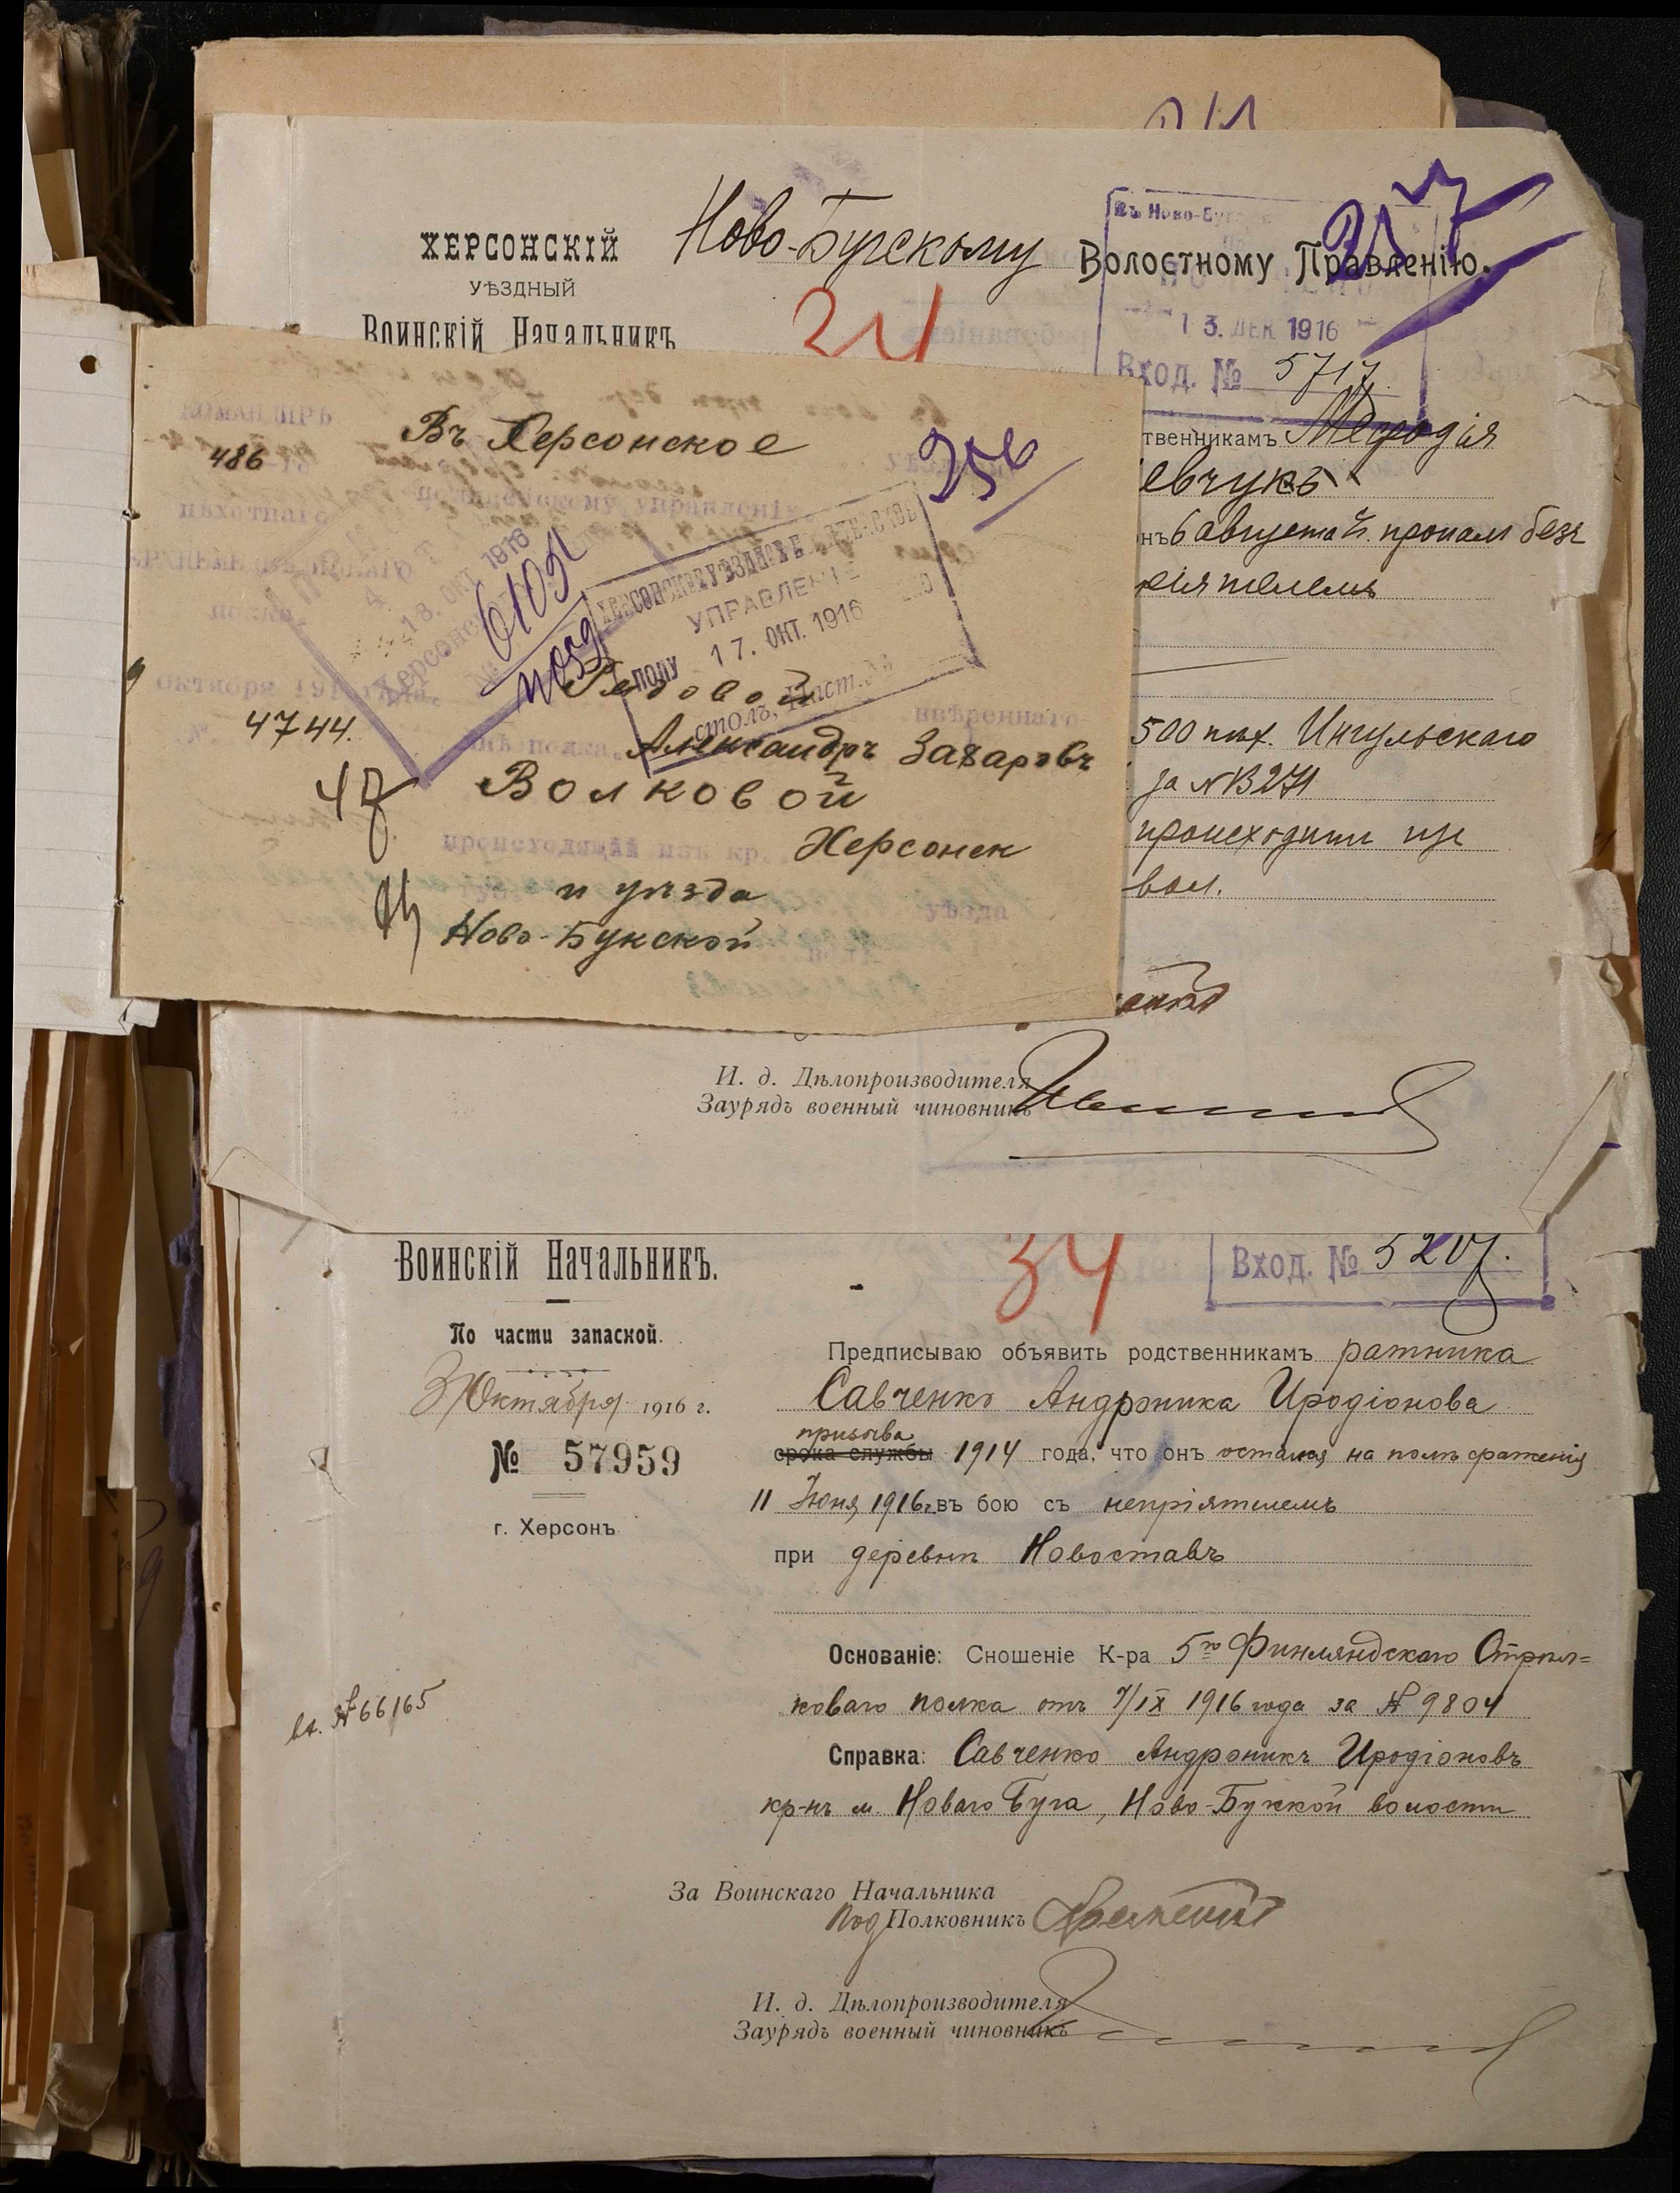 Ново-Бугскому Волостному Правленію.
ХЕРСОНСКІЙ
УѢЗДНЫЙ
Воинскій Начальникъ
24
257
Въ Ново-Буг
13. ДЕК 1916
Вход. № 5717
твенникамъ Меѳодія
евчукъ
нъ 6 августа пропалъ безъ
500 пѣх. Ингульскаго
за № 13271
происходитъ из
вол.
Въ Херсонское
486
256
КОМАНДИРЪ
пѣхотнаго
полка.
воинскому управленію
18. ОКТ. 1916
61091
ХЕРСОНСКОЕ УѢЗДНОЕ ВОИНСКОЕ
УПРАВЛЕНІЕ
17. ОКТ. 1916
столъ, Лист.
Рядовой
октября 191
4744.
ввѣреннаго
мнѣ полка,
Александръ Захаровъ
Волковой
происходящій изъ кр. Херсонск
и уѣзда
уѣзда
Ново-Букской
И. д. Дѣлопроизводителя
Заурядъ военный чиновникъ
Воинскій Начальникъ.
34
Вход. № 5207.
По части запасной.
3 Октября 1916 г.
№ 57959
г. Херсонъ
Предписываю объявить родственникамъ ратника
Савченко Андроника Иродіонова
призыва
срока службы 1914 года, что онъ остался на полѣ сраженія
11 Іюня 1916 г. въ бою съ непріятелемъ
при деревнѣ Новоставъ
Основаніе: Сношеніе К-ра 5го Финляндскаго Стрѣл=
коваго полка отъ 7/IX 1916 года за № 9804
вх. № 66165
Справка: Савченко Андроникъ Иродіоновъ
кр-нъ м. Новаго Буга, Ново-Бугской волости
За Воинскаго Начальника
Под Полковникъ
И. д. Дѣлопроизводителя
Заурядъ военный чиновникъ